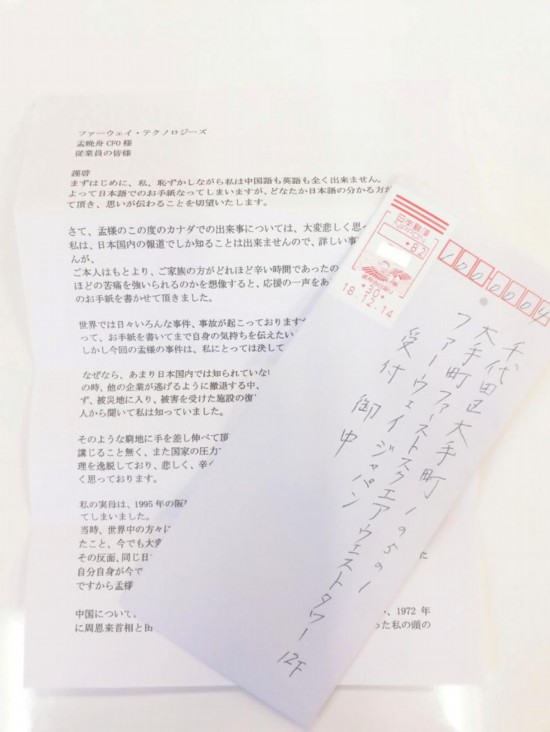 ファーウェイ・テクノロジーズ
孟晩舟 CFO 様
従業員の皆様
謹啓
まずはじめに、私、恥ずかしながら私は中国語も英語も全く出来ません。
よって日本語でのお手紙なってしまいますが、どなたか日本語の分かる方が
て頂き、思いが伝わることを切望いたします。
さて、孟様のこの度のカナダでの出来事については、大変悲しく思っ
私は、日本国内の報道でしか知ることは出来ませんので、詳しい事
んが、
ご本人はもとより、ご家族の方がどれほど辛い時間であったの
ほどの苦痛を強いられるのかを想像すると、応援の一声をあ
のお手紙を書かせて頂きました。
世界では日々いろんな事件、事故が起こっておりますが
って、お手紙を書いてまで自身の気持ちを伝えたい
しかし今回の孟様の事件は、私にとっては決して
なぜなら、あまり日本国内では知られていない
の時、他の企業が逃げるように撤退する中、
ず、被災地に入り、被害を受けた施設の復
人から聞いて私は知っていました。
そのような窮地に手を差し伸べて頂
講じること無く、また国家の圧力
理を逸脱しており、悲しく、辛
く思っております。
私の実母は、1995 年の阪
てしまいました。
当時、世界中の方々に
たこと、今でも大変
その反面、同じ日
自分自身が今で
ですから孟様
中国について、
、1972 年
に周恩来首相と田
った私の頭の
日本郵便
82
30
18.12.14
千代田区大手町
大手町ファーストスクエアウエストタワー
12F
ファーウェイジャパン
受付 御中